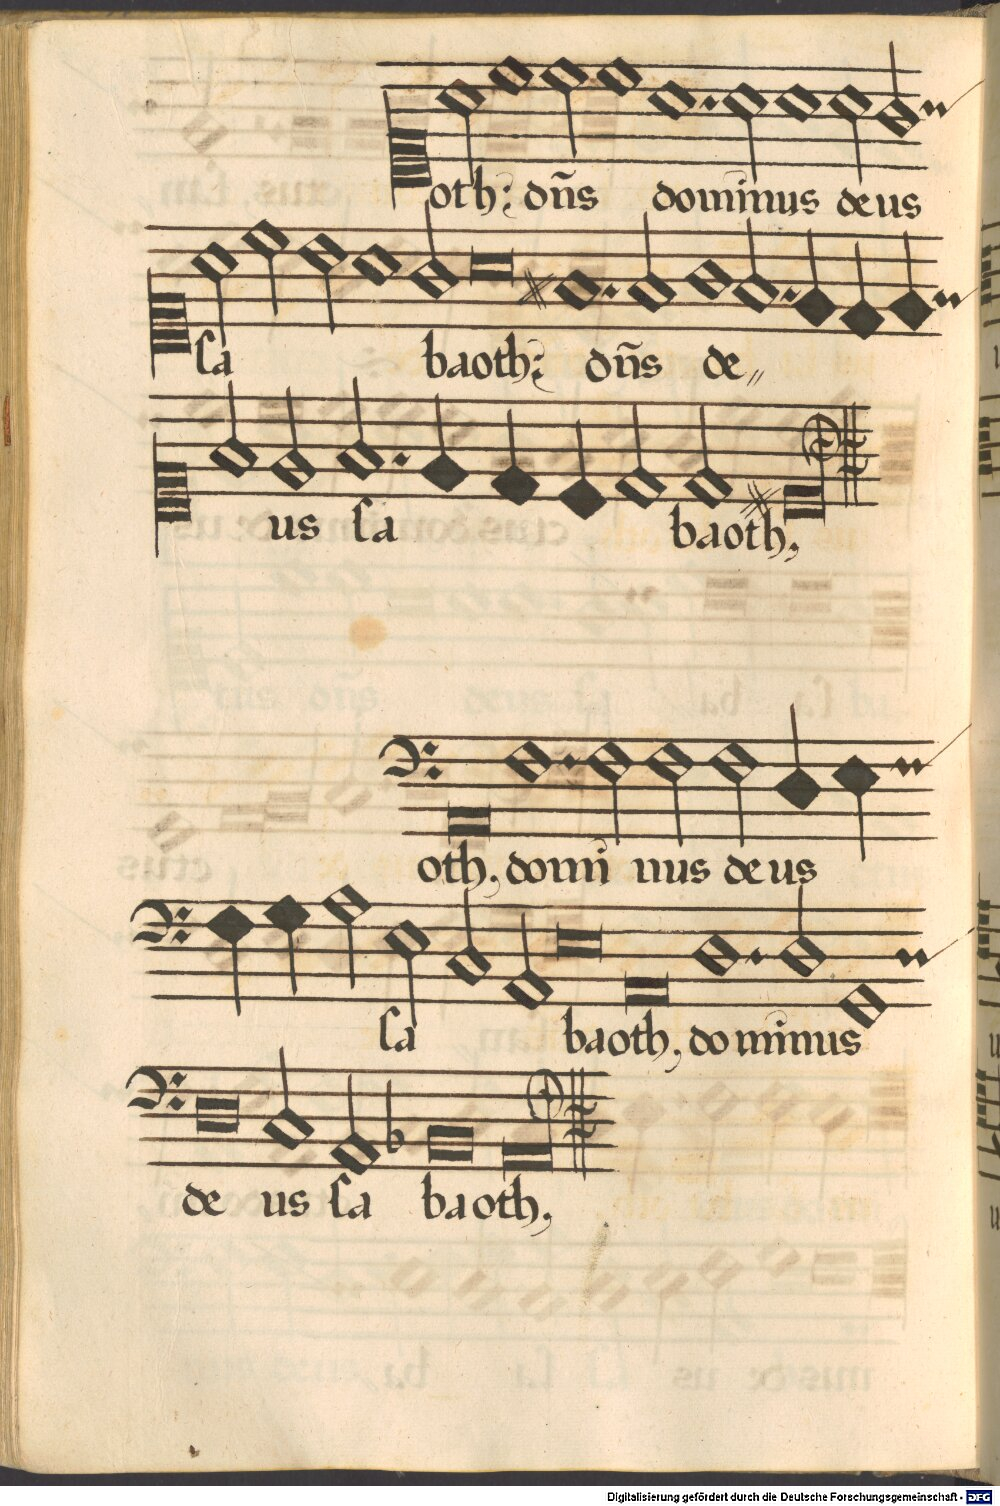 oth: dñs dominus deus
sa baoth: dñs de„
us sa baoth,
oth, domi nus deus
sa baoth, dominus
de us sa baoth,
Digitalisierung gefördert durch die Deutsche Forschungsgemeinschaft - DFG